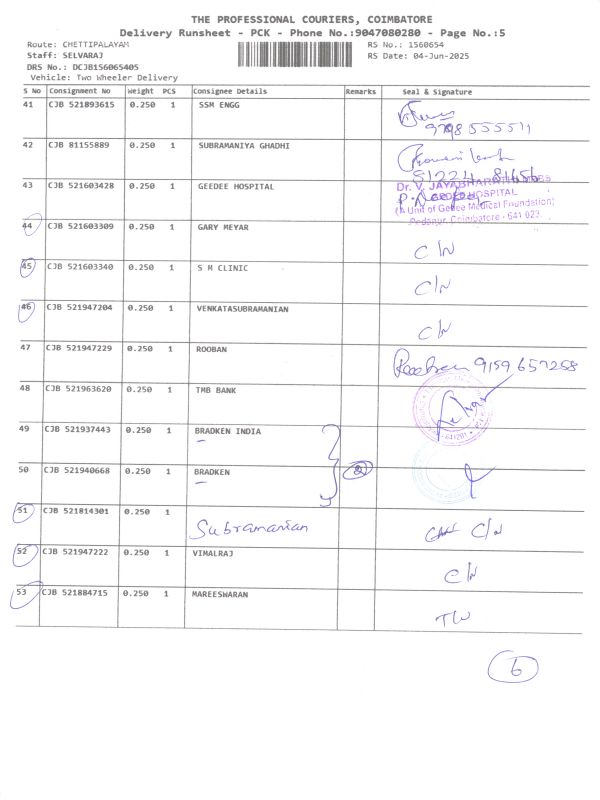 THE PROFESSIONAL COURIERS, COIMBATORE
Delivery Runsheet - PCK - Phone No.:9047080280 - Page No.:5
Route: CHETTIPALAYAM RS No.: 1560654
Staff: SELVARAJ RS Date: 04-Jun-2025
DRS No.: DCJB156065405
Vehicle: Two Wheeler Delivery
S No Consignment No Weight PCS Consignee Details Remarks Seal & Signature
41 CJB 521893615 0.250 1 SSM ENGG
42 CJB 81155889 0.250 1 SUBRAMANIYA GHADHI
43 CJB 521603428 0.250 1 GEEDEE HOSPITAL
Dr. V. JAYABHARATHI MBBS
GEDEE HOSPITAL
(A Unit of Gedee Medical Foundation)
Podanur, Coimbatore - 641 023.
44 CJB 521603309 0.250 1 GARY MEYAR C/N
45 CJB 521603340 0.250 1 S M CLINIC C/N
46 CJB 521947204 0.250 1 VENKATASUBRAMANIAN C/N
47 CJB 521947229 0.250 1 ROOBAN Rooban 9159 657258
48 CJB 521963620 0.250 1 TMB BANK
49 CJB 521937443 0.250 1 BRADKEN INDIA
50 CJB 521940668 0.250 1 BRADKEN 2
51 CJB 521814301 0.250 1 Subramanian C/N
52 CJB 521947222 0.250 1 VIMALRAJ C/N
53 CJB 521884715 0.250 1 MAREESWARAN
6